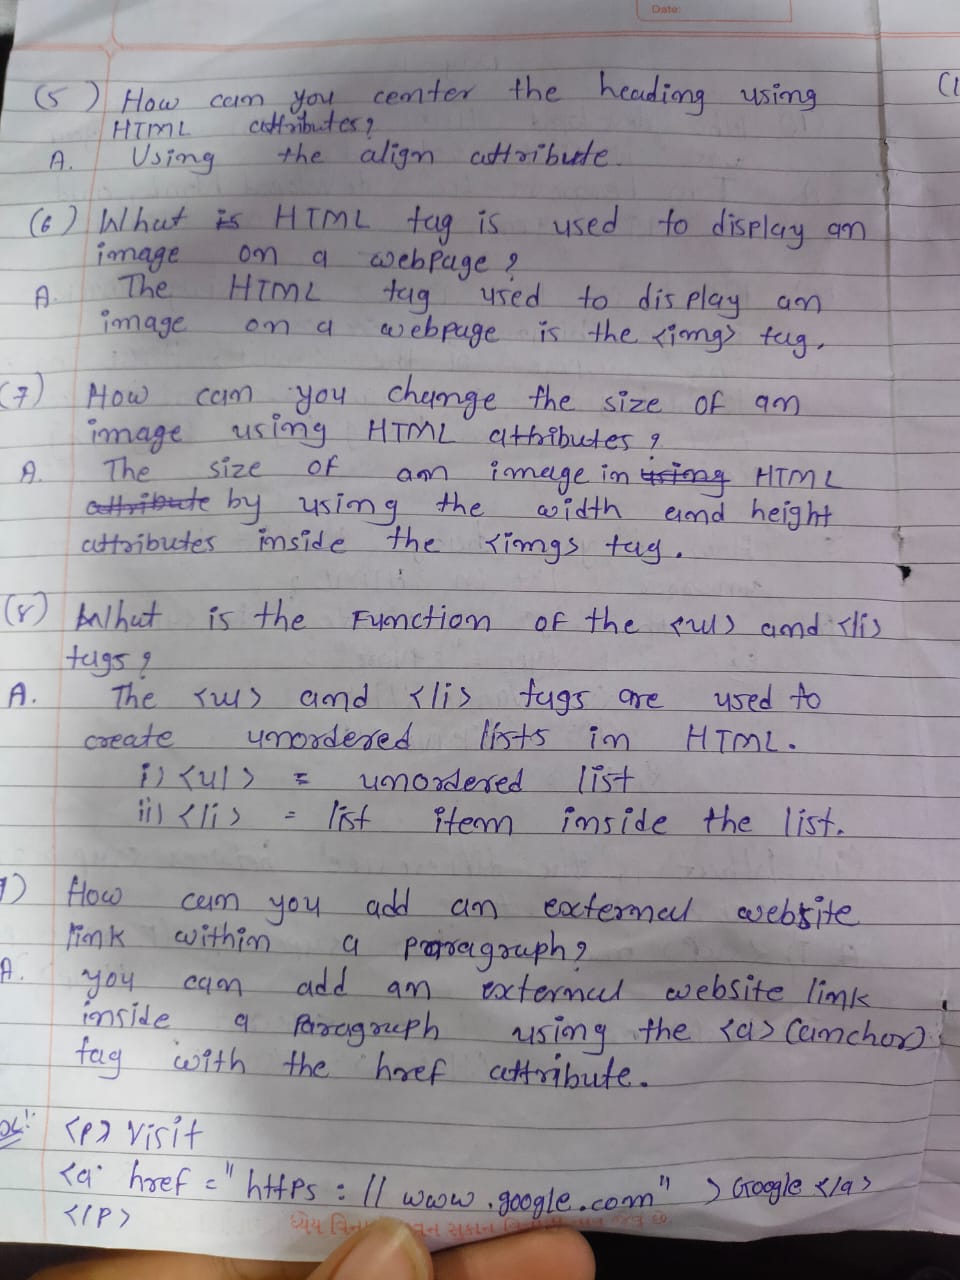 Date:
(5) How can you center the heading using
HTML attributes?
A. Using the align attribute.
(6) What is HTML tag is used to display an
image on a webpage?
A. The HTML tag used to display an
image on a webpage is the <img> tag.
(7) How can you change the size of an
image using HTML attributes?
A. The size of an image in using HTML
attribute by using the width and height
attributes inside the <img> tag.
(8) What is the Function of the <ul> and <li>
tags?
A. The <ul> and <li> tags are used to
create unordered lists in HTML.
i) <ul> = unordered list
ii) <li> = list item inside the list.
How can you add an external website
link within a paragraph?
A. you can add an external website link
inside a paragraph using the <a> (anchor)
tag with the href attribute.
<p> Visit
<a href = "https://www.google.com" > Google </a>
</p>